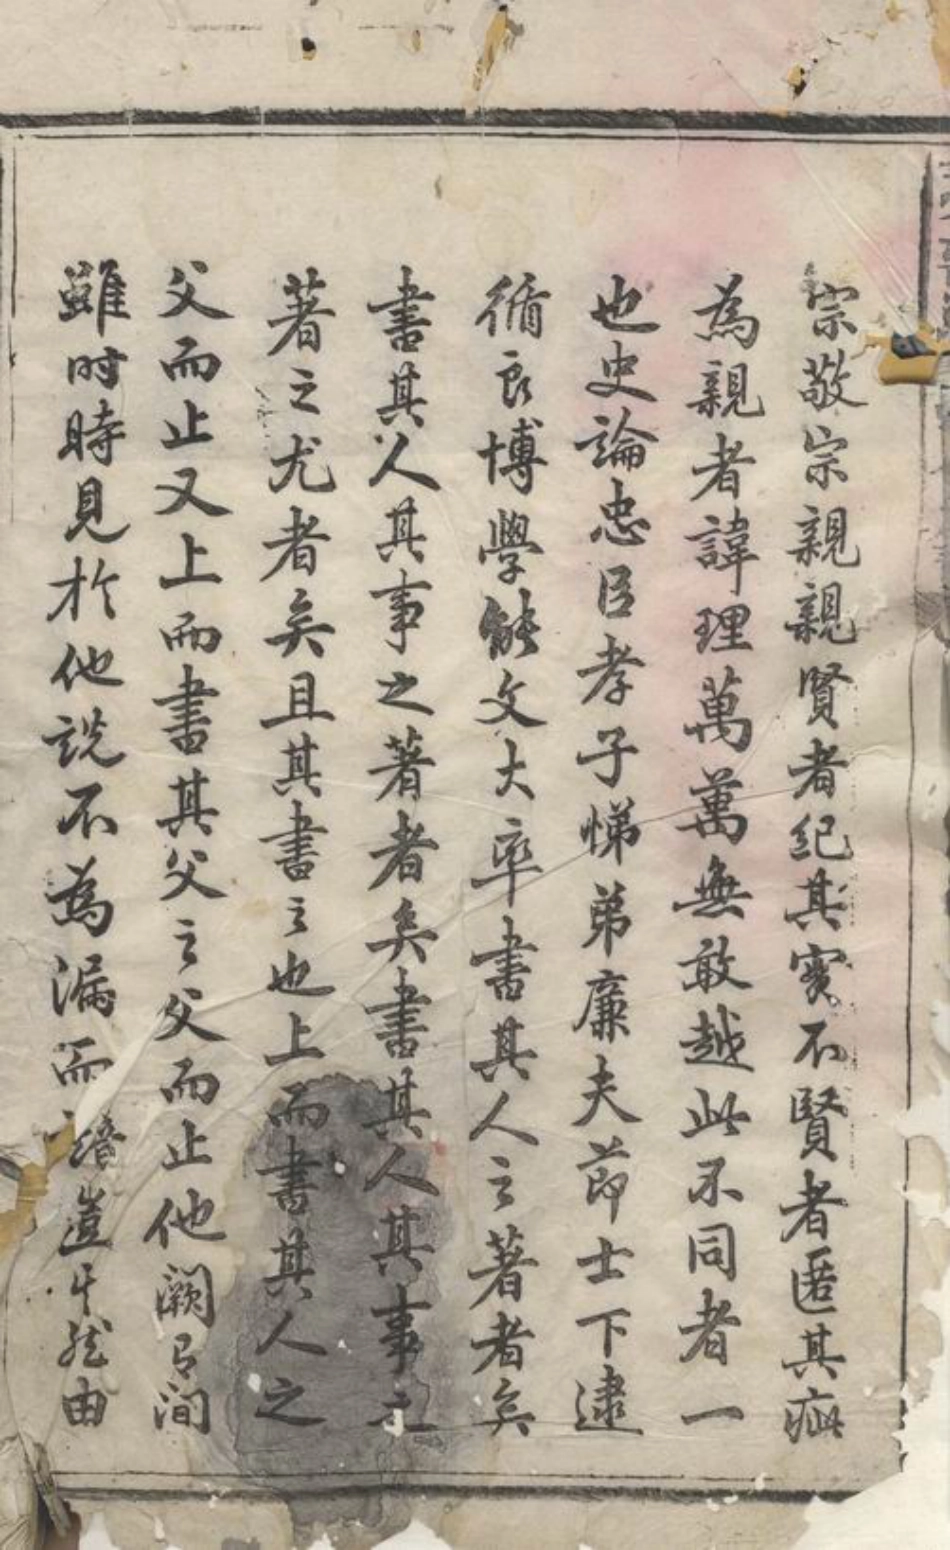 宗敬宗親親賢者紀其實不賢者匿其疵
為親者諱理萬萬無敢越此不同者一
也史論忠臣孝子悌弟廉夫節士下逮
循良博學能文大率書其人之著者矣
書其人其事之著者矣書其人其事之
著之尤者矣且其書之也上而書其人之
父而止又上而書其父之父而止他闕有間
雖时時見於他說不為漏而豈由